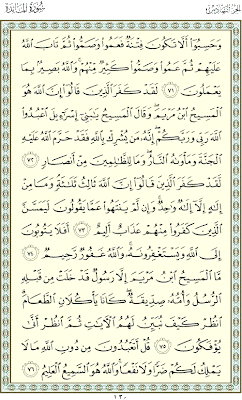 الجزء السادس سورة المائدة
وَحَسِبُوٓا۟ أَلَّا تَكُونَ فِتْنَةٌ فَعَمُوا۟ وَصَمُّوا۟ ثُمَّ تَابَ ٱللَّهُ
عَلَيْهِمْ ثُمَّ عَمُوا۟ وَصَمُّوا۟ كَثِيرٌ مِّنْهُمْ وَٱللَّهُ بَصِيرٌۢ بِمَا
يَعْمَلُونَ ٧١ لَقَدْ كَفَرَ ٱلَّذِينَ قَالُوٓا۟ إِنَّ ٱللَّهَ هُوَ
ٱلْمَسِيحُ ٱبْنُ مَرْيَمَ وَقَالَ ٱلْمَسِيحُ يَٰبَنِىٓ إِسْرَٰٓءِيلَ ٱعْبُدُوا۟
ٱللَّهَ رَبِّى وَرَبَّكُمْ إِنَّهُۥ مَن يُشْرِكْ بِٱللَّهِ فَقَدْ حَرَّمَ ٱللَّهُ عَلَيْهِ
ٱلْجَنَّةَ وَمَأْوَىٰهُ ٱلنَّارُ وَمَا لِلظَّٰلِمِينَ مِنْ أَنصَارٍ ٧٢
لَّقَدْ كَفَرَ ٱلَّذِينَ قَالُوٓا۟ إِنَّ ٱللَّهَ ثَالِثُ ثَلَٰثَةٍ وَمَا مِنْ
إِلَٰهٍ إِلَّآ إِلَٰهٌ وَٰحِدٌ وَإِن لَّمْ يَنتَهُوا۟ عَمَّا يَقُولُونَ لَيَمَسَّنَّ
ٱلَّذِينَ كَفَرُوا۟ مِنْهُمْ عَذَابٌ أَلِيمٌ ٧٣ أَفَلَا يَتُوبُونَ
إِلَى ٱللَّهِ وَيَسْتَغْفِرُونَهُۥ وَٱللَّهُ غَفُورٌ رَّحِيمٌ ٧٤
مَّا ٱلْمَسِيحُ ٱبْنُ مَرْيَمَ إِلَّا رَسُولٌ قَدْ خَلَتْ مِن قَبْلِهِ
ٱلرُّسُلُ وَأُمُّهُۥ صِدِّيقَةٌ كَانَا يَأْكُلَانِ ٱلطَّعَامَ
ٱنظُرْ كَيْفَ نُبَيِّنُ لَهُمُ ٱلْءَايَٰتِ ثُمَّ ٱنظُرْ أَنَّىٰ
يُؤْفَكُونَ ٧٥ قُلْ أَتَعْبُدُونَ مِن دُونِ ٱللَّهِ مَا لَا
يَمْلِكُ لَكُمْ ضَرًّا وَلَا نَفْعًا وَٱللَّهُ هُوَ ٱلسَّمِيعُ ٱلْعَلِيمُ ٧٦
١٢٠